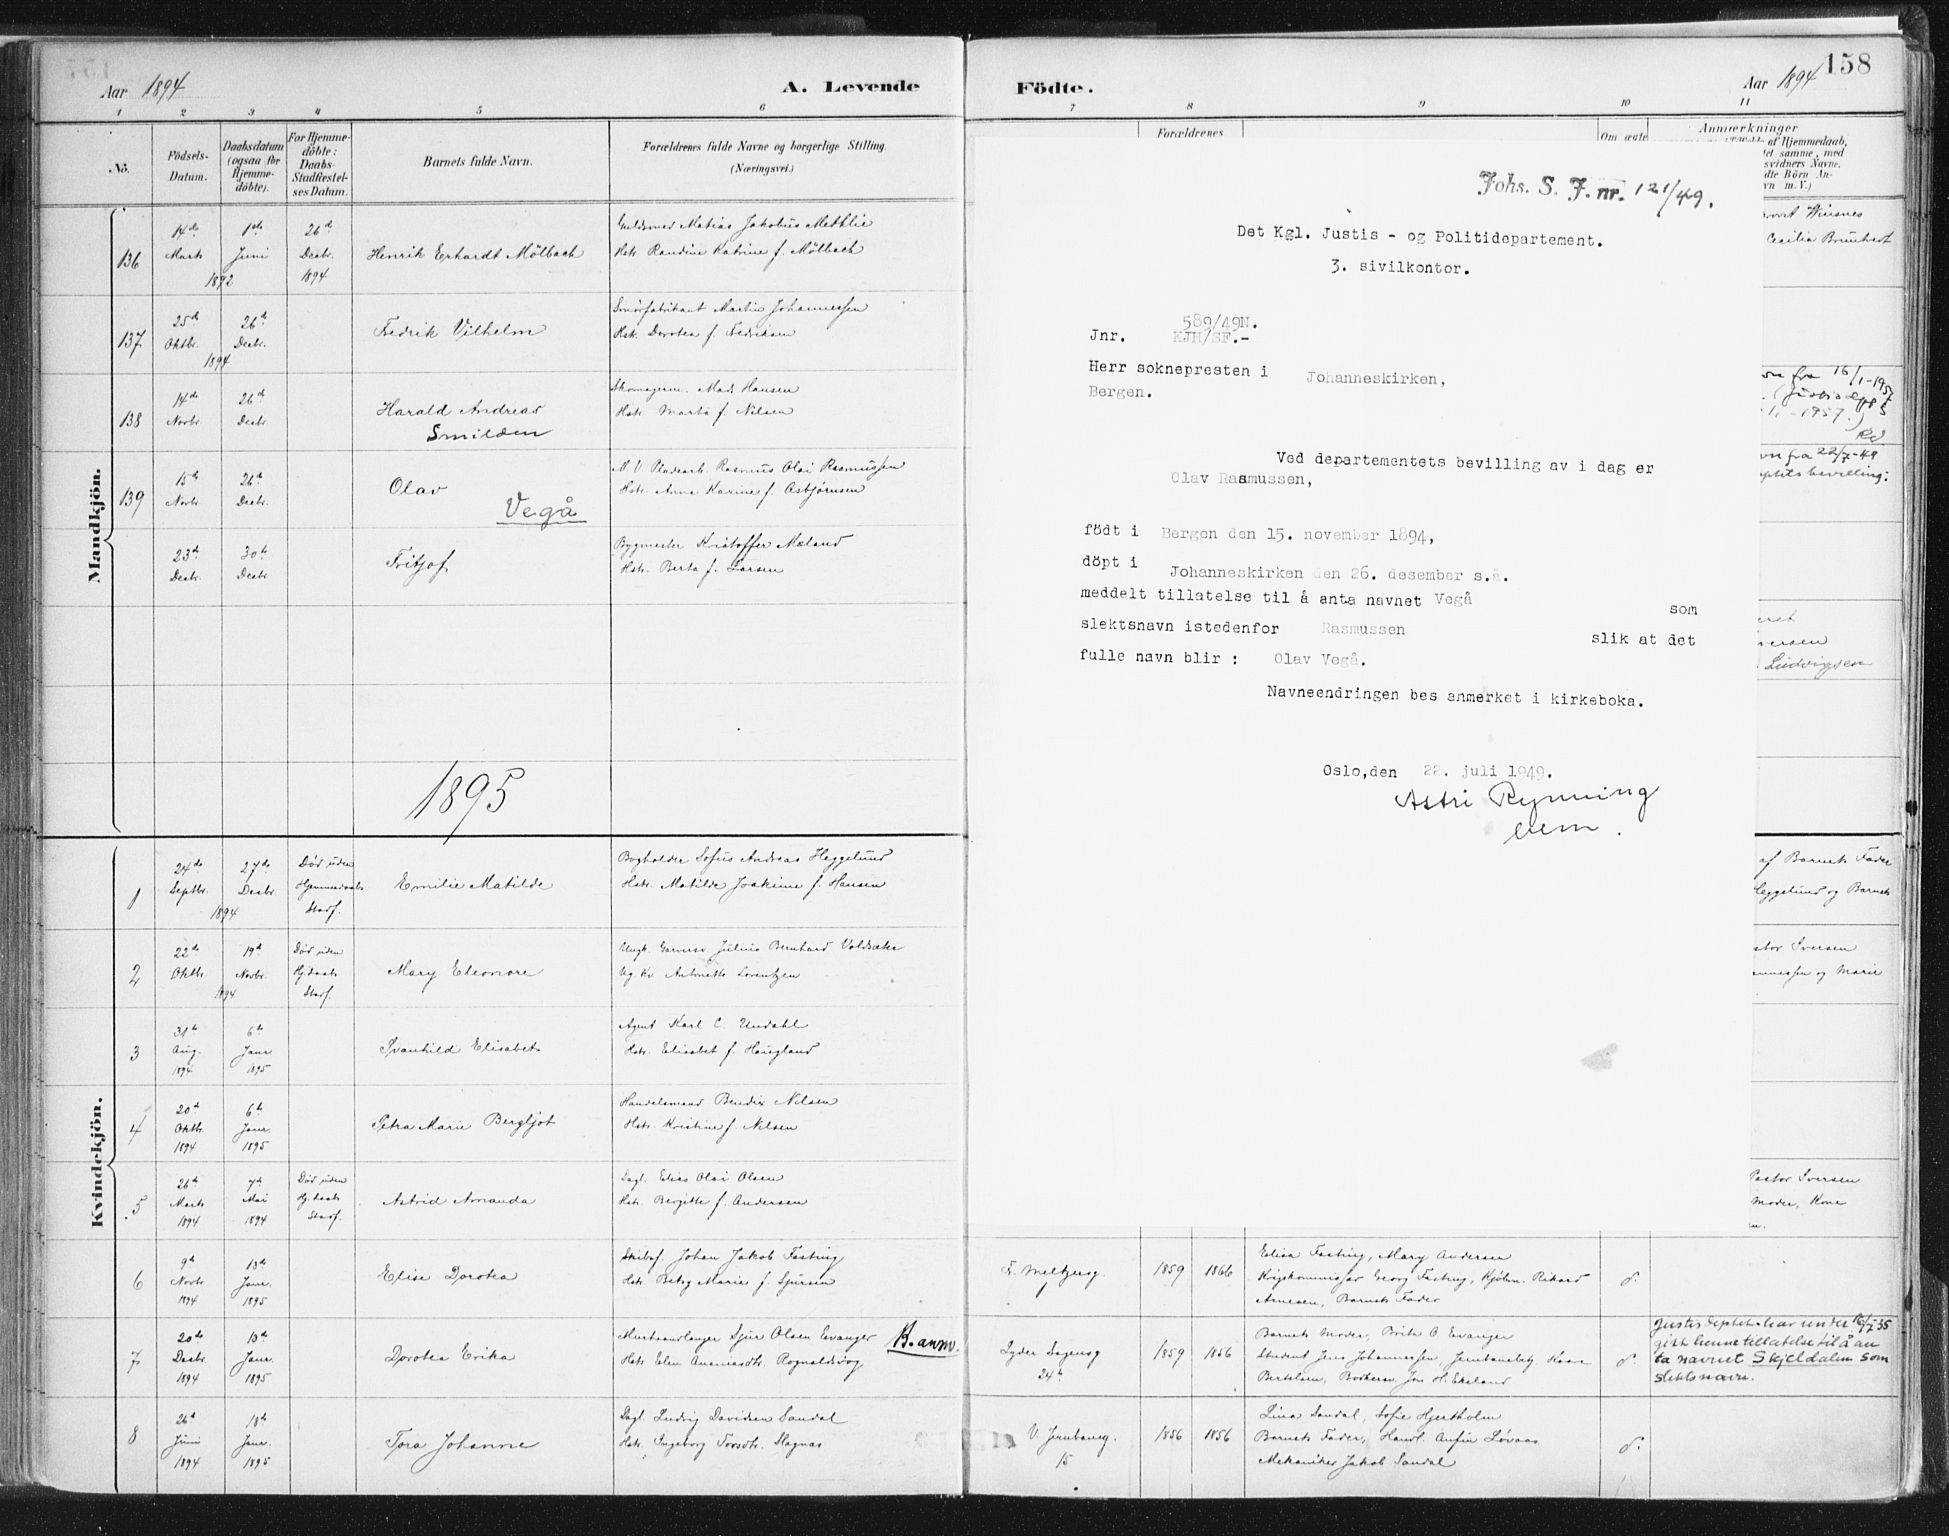 158
Aar 1894
A. Levende
Födte.
Aar 1894
1 2 3 4 5 6 7 8 9 10 11
No.
Födsels-
Datum.
Daabsdatum
(ogsaa for
Hjemme-
döbte).
For Hjemme-
döbte:
Daabs-
Stadfestel-
ses Datum.
Barnets fulde Navn.
Forældrenes fulde Navne og borgerlige Stilling.
(Næringsvei.)
Forældrenes
Om ægte
Anmærkninger
af Hjemmedaab,
samme, med
svidners Navne.
dte Börn An-
m. V.)
Mandkjön.
136
14de
Marts
1ste
Juni
1892
26de
Decbr.
1894
Henrik Erhardt Mölbach
Guldsmed Matias Jakobus Methlie
Hstr. Randine Katrine f. Mölbach
Cecilia
137
25de
Oktbr.
26de
Decbr.
1894
Fredrik Vilhelm
Smörfabrikant Martin Johannessen
Hstr. Dorotea f. Fredriksen
138
14de
Novbr.
26de
Decbr.
Harald Andreas
Smilden
Skomagerm. Mads Hansen
Hstr. Marta f. Nilsen
fra 16/1-1957
1957.)
139
15de
Novbr.
26de
Decbr.
Olav
Vegå
Rasmus Olai Rasmussen
Hstr. Anna Karine f. Asbjørnsen
fra 22/7-49
bevilling:
23de
Decbr.
30te
Decbr.
Fritjof
Bygmester Kristoffer Mæland
Hstr. Berta f. Larsen
Iversen
Ludvigsen
Johs. S. J. nr. 121/49.
Det Kgl. Justis - og Politidepartement.
3. sivilkontor.
589/49N.
Jnr. KJH/SF.-
Herr soknepresten i Johanneskirken,
Bergen.
Ved departementets bevilling av i dag er
Olav Rasmussen,
födt i Bergen den 15. november 1894,
döpt i Johanneskirken den 26. desember s.å.
meddelt tillatelse til å anta navnet Vegå som
slektsnavn istedenfor Rasmussen slik at det
fulle navn blir : Olav Vegå.
Navneendringen bes anmerket i kirkeboka.
Oslo,den 22. juli 1949.
Astri Rynning
1895
Kvindekjön.
1
24de
Septbr.
27de
Decbr.
1894
Död uden
Hjemmedaabs
Stadf.
Emilie Matilde
Bogholder Sofus Andreas Heggelund
Hstr. Matilde Joakime f. Hansen
af Barnets Fader
Heggelund og Barnets
2
22de
Oktbr.
19de
Novbr.
1894
Död uden
Hj.daabs
Stadf.
Mary Eleonore
Ungk. Garver Julius Bernhard
Ug. Kv. Antonette Lorentzen
Pastor Iversen
og Marie
3
31te
Aug.
1894
6te
Janr.
1895
Svanhild Elisabet
Agent Karl C. Undahl
Hstr. Elisabet f. Haugland
4
20de
Oktbr.
1894
6te
Janr.
1895
Petra Marie Bergljot
Handelsmand Bendix Nilsen
Hstr. Kristine f. Nilsen
5
26de
Marts
1894
7de
Mai
1894
Död uden
Hj.daabs
Stadf.
Astrid Amanda
Dagl. Elias Olai Olsen
Hstr. Bergitte f. Andersen
Pastor Iversen
Moder, Kone
6
9de
Novbr.
1894
13de
Janr.
1895
Elise Dorotea
Skibsf. Johan Jakob Fasting
Hstr. Betsy Marie f. Sjursen
1859 1866
Elisa Fasting, Mary Andersen
Krigskommissær Georg Fasting, Kjøbm. Rikard
Arnesen, Barnets Fader
7
20de
Decbr.
1894
13de
Janr.
1895
Dorotea Erika
Murhaandlanger Sjur Olsen Evanger B. anm.
Hstr. Elen
Lyder Sagensg
24
1859 1856
Barnets Moder, Brita O. Evanger
Student Jens Johannessen, Jernbanebetj. Kaare
Bertelsen, Bödkersv. Jon H. Ekeland
Justisdeptet har under 16/5-35
gitt henne tillatelse til å an
ta navnet Skjeldalm som
slektsnavn.
8
26de
Juni
1894
18de
Janr.
1895
Tora Johanne
Dagl. Ludvig Davidsen Sandal
Hstr. Ingeborg Torsdtr. Hagnas
V. Jernbaneg.
15
1856 1856
Lina Sandal, Sofie Hjertholm
Barnets Fader, Handl. Anfin Løvaas
Mekaniker Jakob Sandal